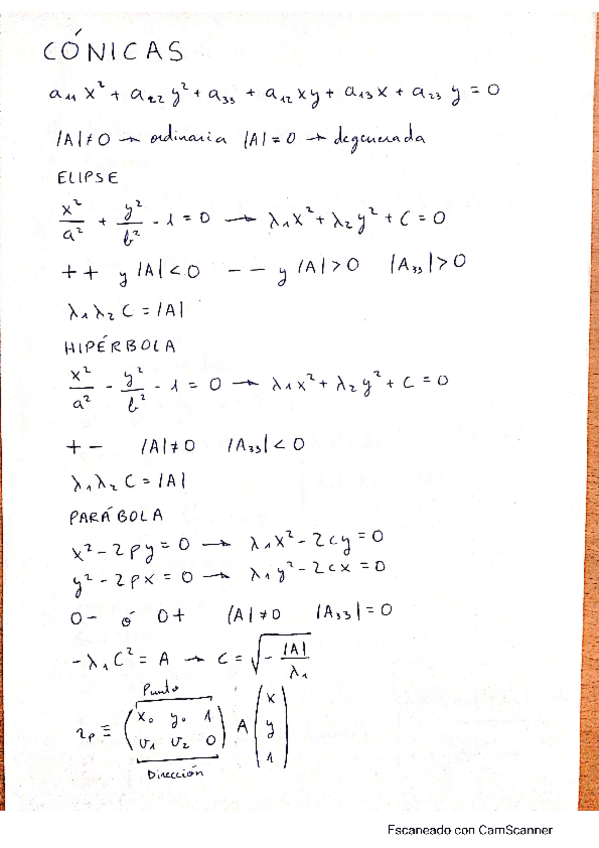 CÓNICAS
a₁₁x² + a₂₂y² + a₃₃ + a₁₂xy + a₁₃x + a₂₃y = 0
|A| ≠ 0 → ordinaria |A| = 0 → degenerada
ELIPSE
x²/a² + y²/b² - 1 = 0 → λ₁x² + λ₂y² + C = 0
+ + y |A| < 0 - - y |A| > 0 |A₃₃| > 0
λ₁λ₂C = |A|
HIPÉRBOLA
x²/a² - y²/b² - 1 = 0 → λ₁x² + λ₂y² + C = 0
+ - |A| ≠ 0 |A₃₃| < 0
λ₁λ₂C = |A|
PARÁBOLA
x² - 2py = 0 → λ₁x² - 2cy = 0
y² - 2px = 0 → λ₁y² - 2cx = 0
0 - ó 0 + |A| ≠ 0 |A₃₃| = 0
-λ₁C² = A → C = √(-|A|/λ₁)
Punto
r_P ≡ (x₀ y₀ 1 / v₁ v₂ 0) A (x / y / 1)
Dirección
Escaneado con CamScanner